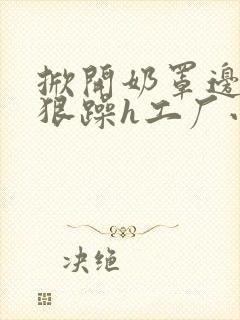 掀開奶罩邊
狠躁h工厂
决绝